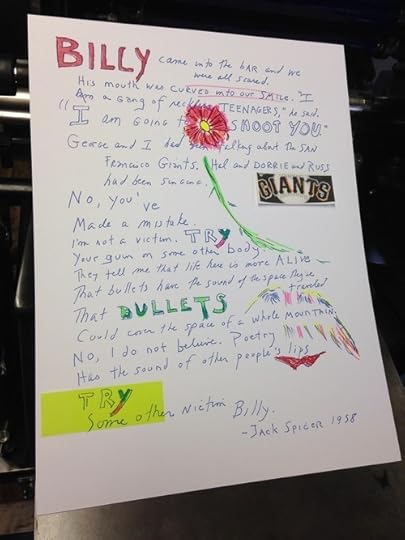 BILLY came into the bAR and we
were all scared.
His mouth was CURVED into our SMILE. "I
Am a gang of reckless TEENAGERS," he said.
"I am GOING SHOOT YOU"
George and I had talking about the SAN
Francisco Giants. Hal and DORRIE and RUSS
had been singing.
GIANTS
No, you've
Made a mistake.
I'm not a victim. TRY
Your gun on some other body.
They tell me that life here is more ALIVE
That bullets have the sound of the space they've
traveled
That BULLETS
Could cover the space of a whole MOUNTAIN.
No, I do not believe. Poetry
Has the sound of other people's lips
TRY
Some other victim Billy.
-JACK SPICER 1958